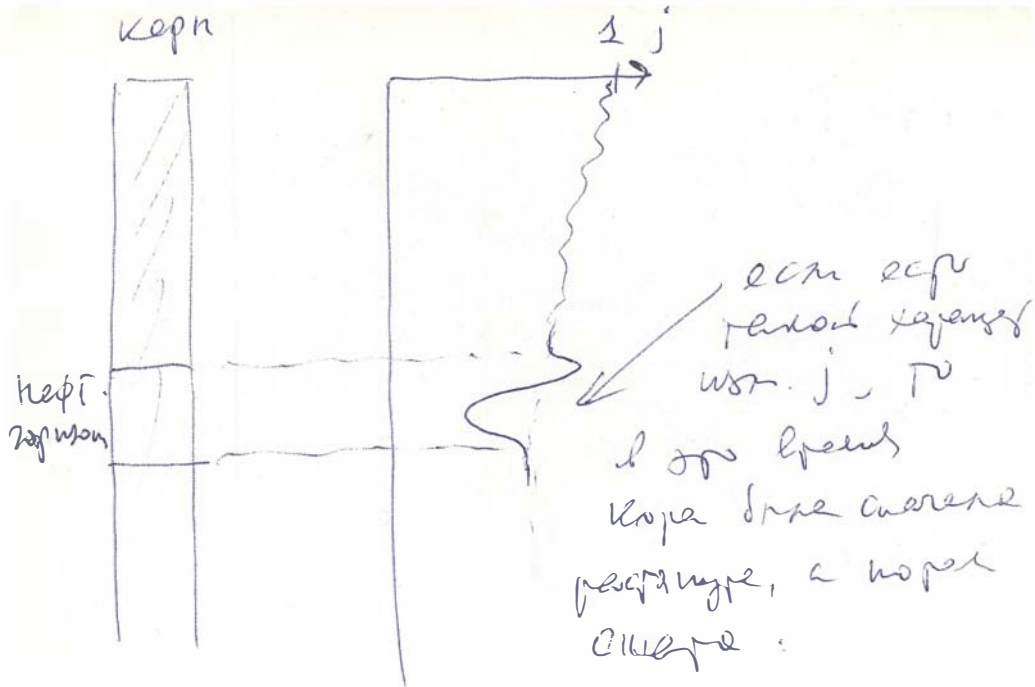 керн
1 j
Нефт.
горизонт
если есть
такой характер
изм. j, то
в это время
Кора была сначала
растянута, а потом
сжата.